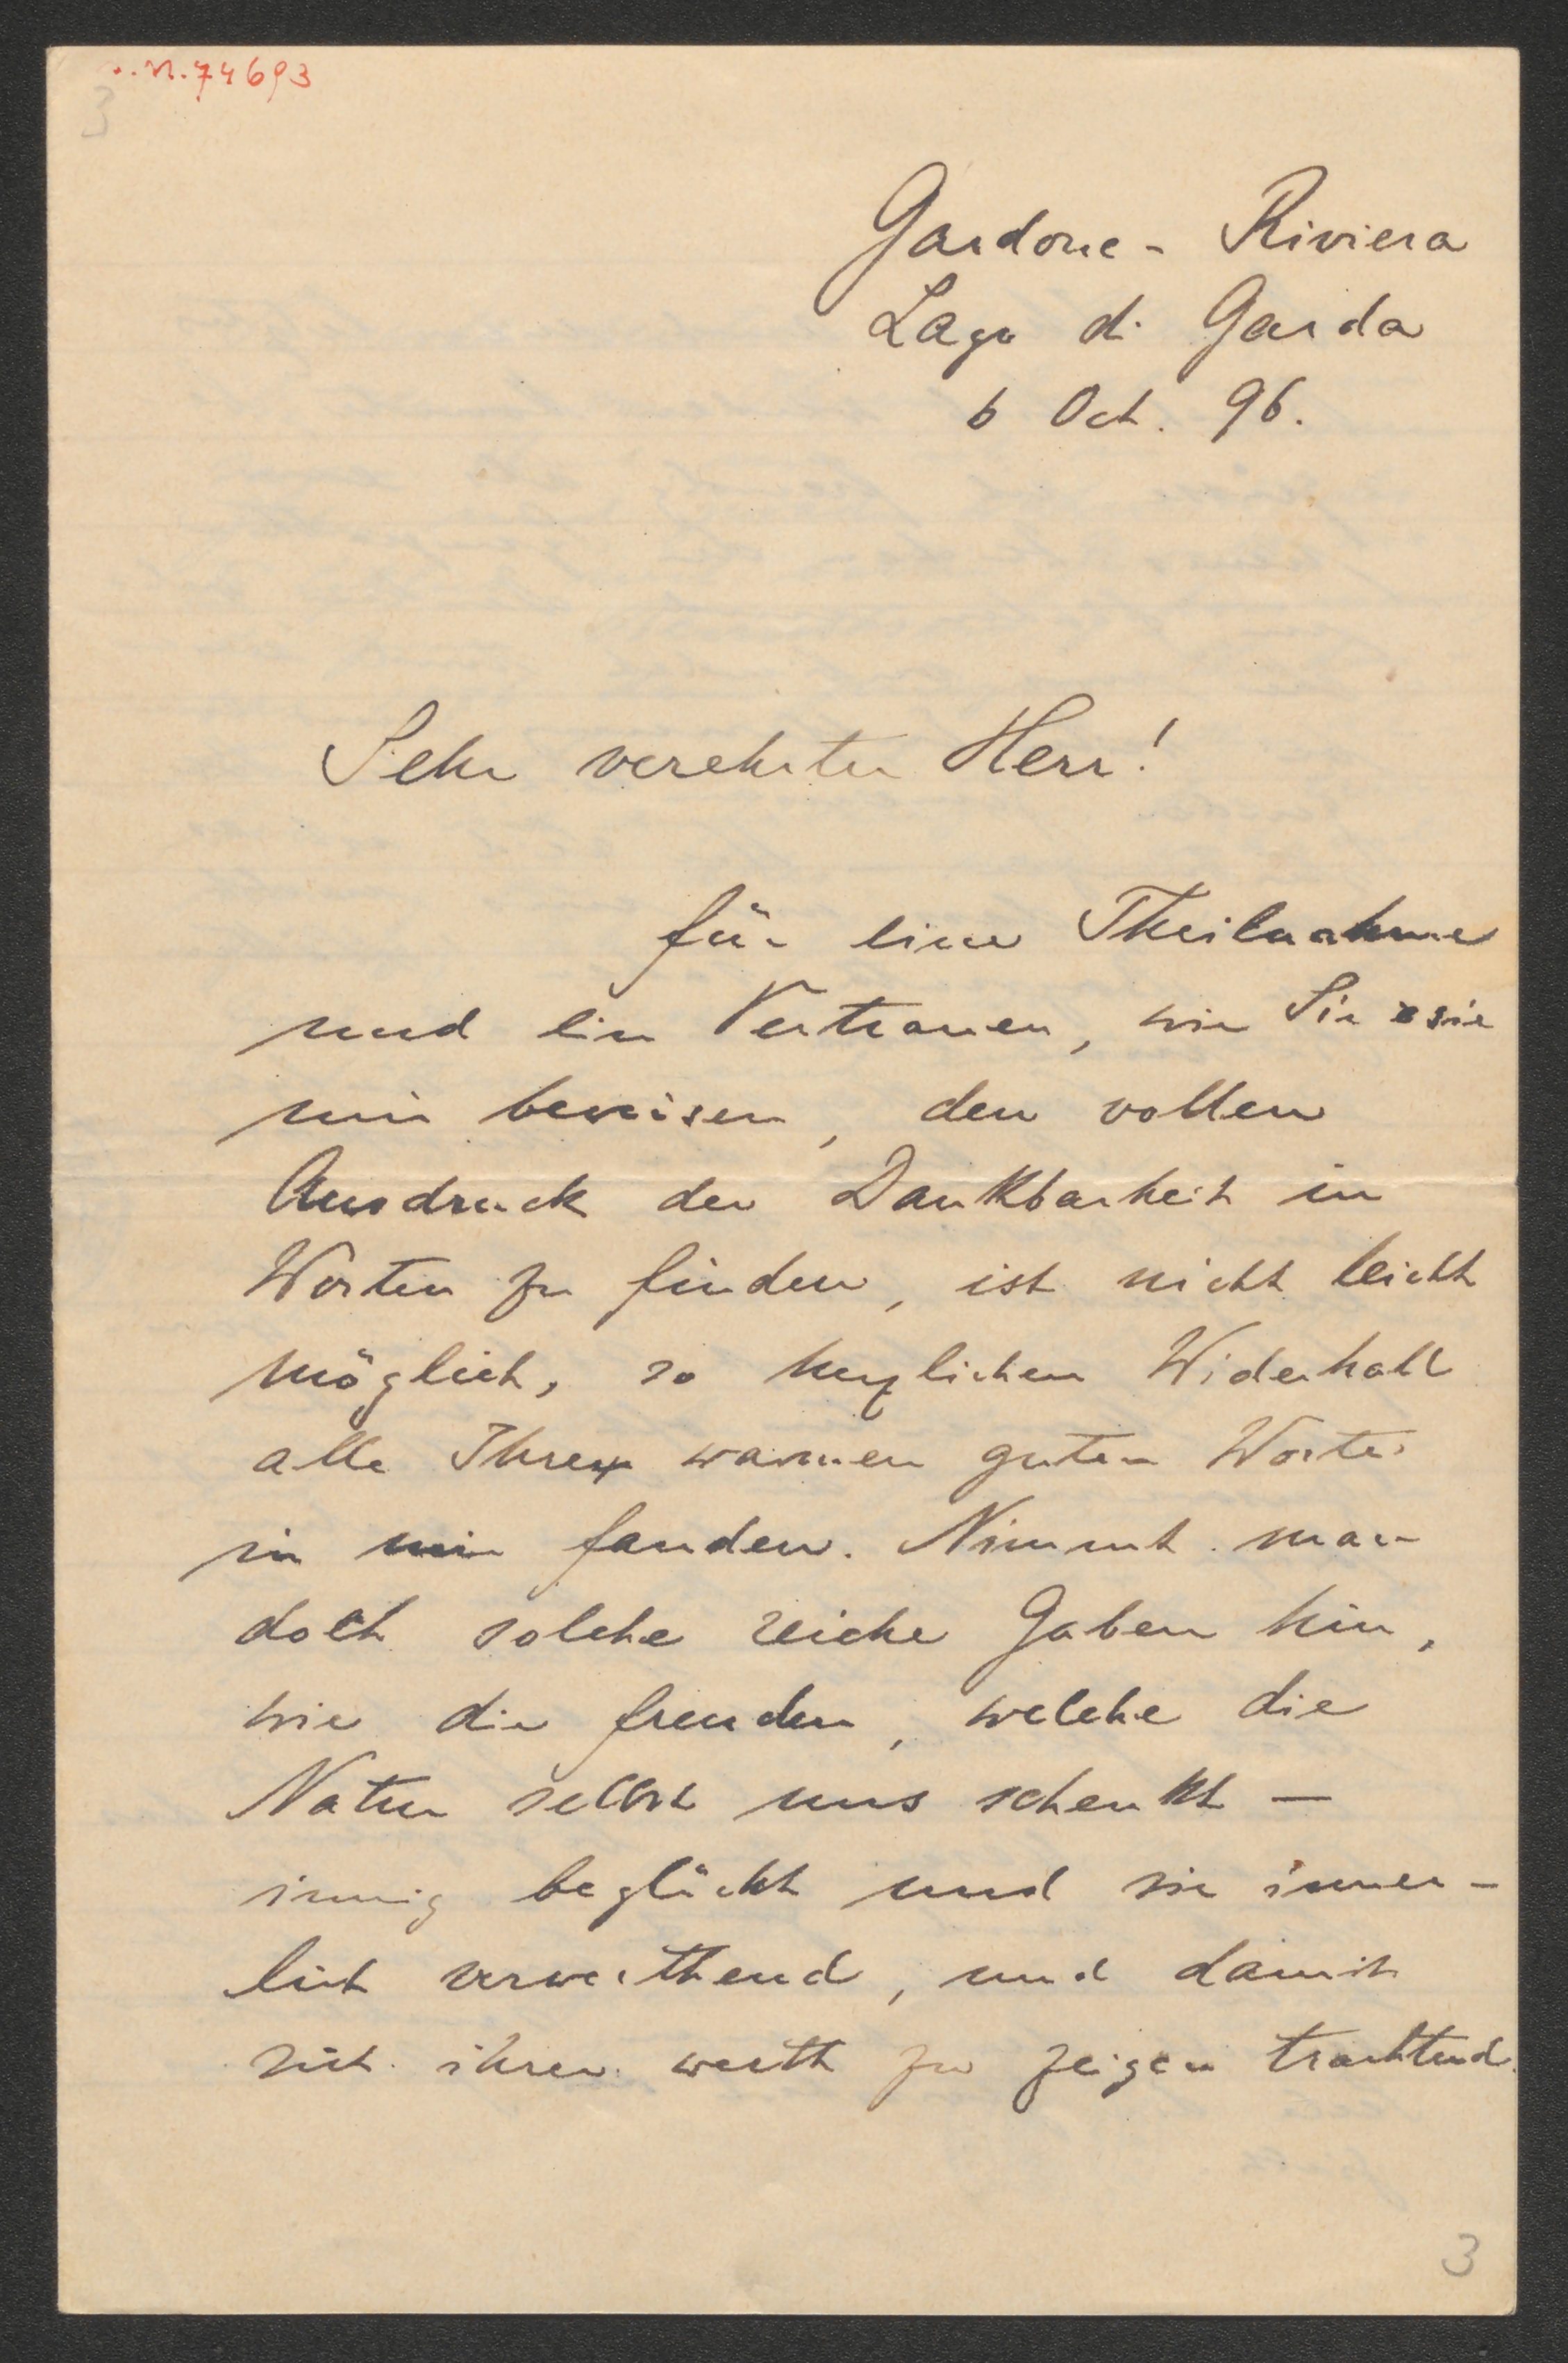 .N.74693
3
Gardone - Riviera
Lago di Garda
6 Oct. 96.
Sehr verehrter Herr!
für eine Theilnahme
und ein Vertrauen, wie Sie sie
mir beweisen, den vollen
Ausdruck der Dankbarkeit in
Worten zu finden, ist nicht leicht
möglich, so herzlichen Widerhall
alle Ihre warmen guten Worte
in mir fanden. Nimmt man
doch solche reiche Gaben hin,
wie die Freuden, welche die
Natur selbst uns schenkt —
innig beglückt und sie inner-
lich verwerthend, und damit
sich ihrer werth zu zeigen trachtend.
3